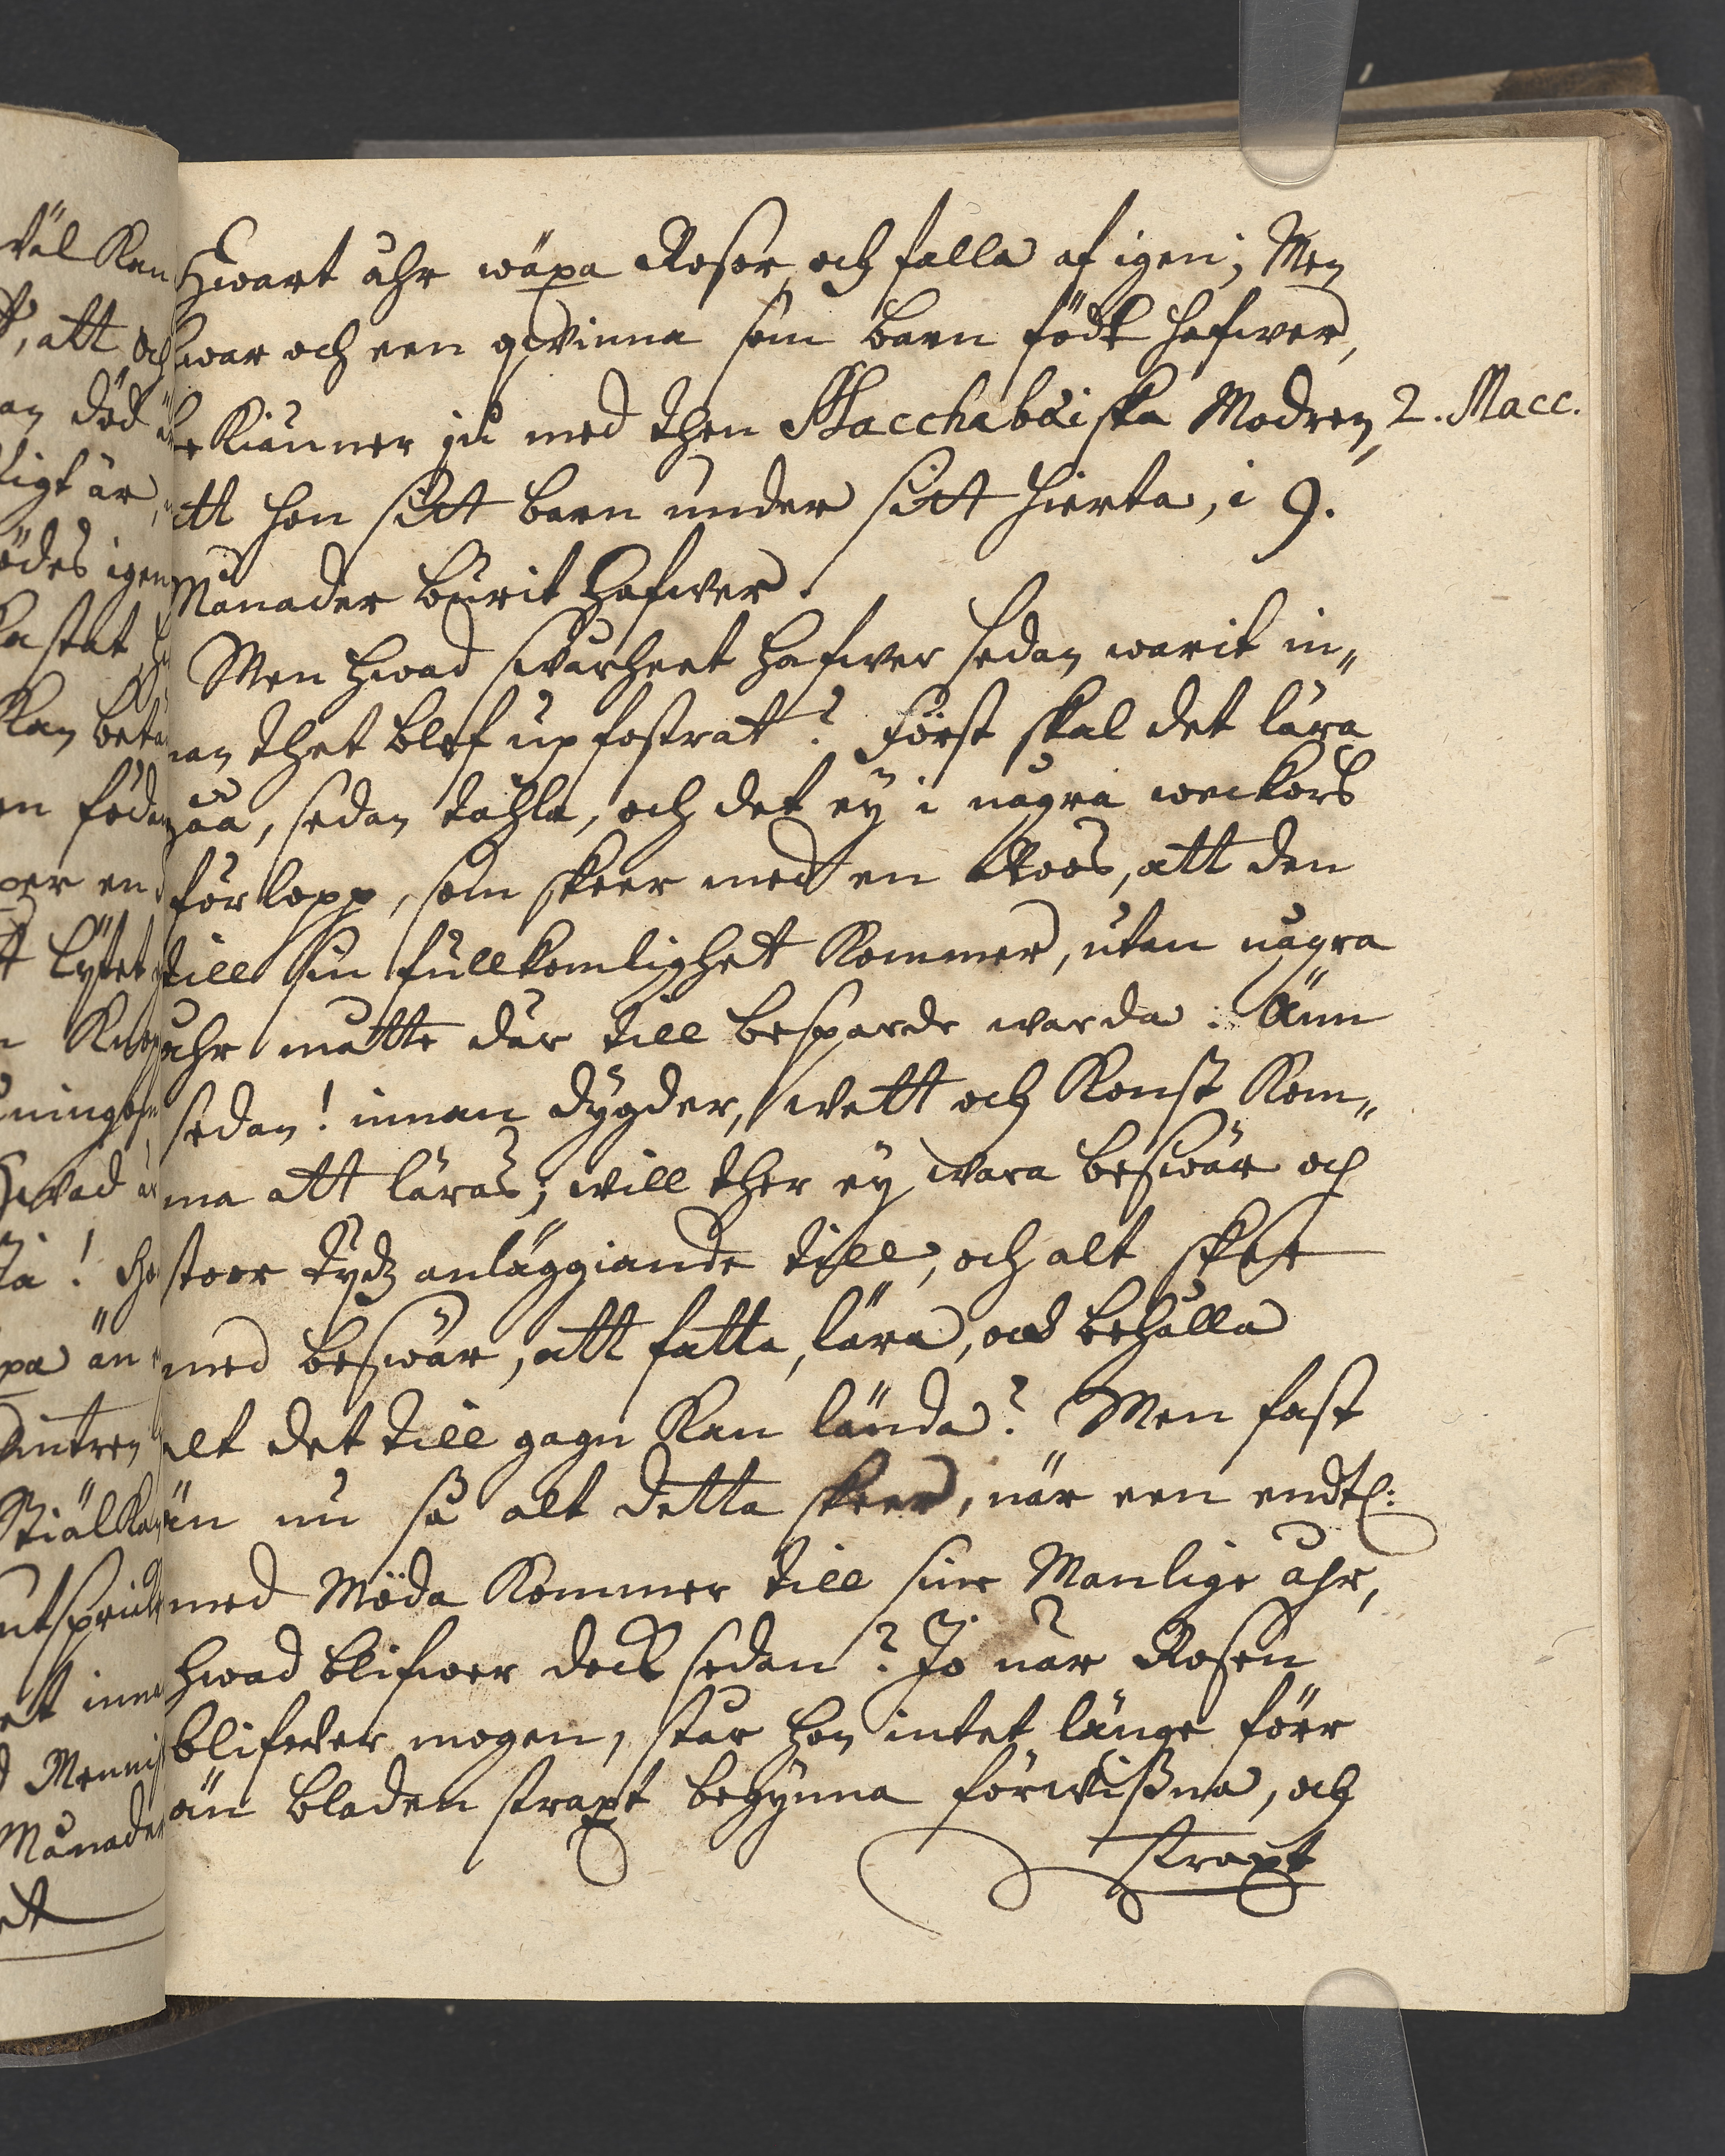 Hwart åhr wäxa Rosor och falla af igen; Men
hwar och een qwinna som barn födt hafwer,
bekiänner ju med then Macchabæiska Modren, 2. Macc.
att hon sitt barn under sitt hierta, i 9.
Månader burit hafwer.
Men hwad swårheet hafwer sedan warit in„
nan thet blef upfostrat? Först skal det lära
gåå, sedan tahla, och det ey i några weckors
förlopp, som skeer med en Roos, att den
till sin fullkomlighet kommer, utan några
åhr måtte där till besparde warda. Änn
sedan! innan dygder, wett och Konst Kom„
ma att läras; will ther ey wara beswär och
stoor tydz anläggiande till, och alt skee
med beswär, att fatta, lära, och behålla
alt det till gagn kan lända? Men fast
än nu så alt detta skeer, när een endtl:
med Möda kommer till sine Manlige åhr,
hwad blifwer dock sedan? Jo när Rosen
blifwer mogen, står hon intet länge förr
än bladen straxt begynna förwißna, och
straxt